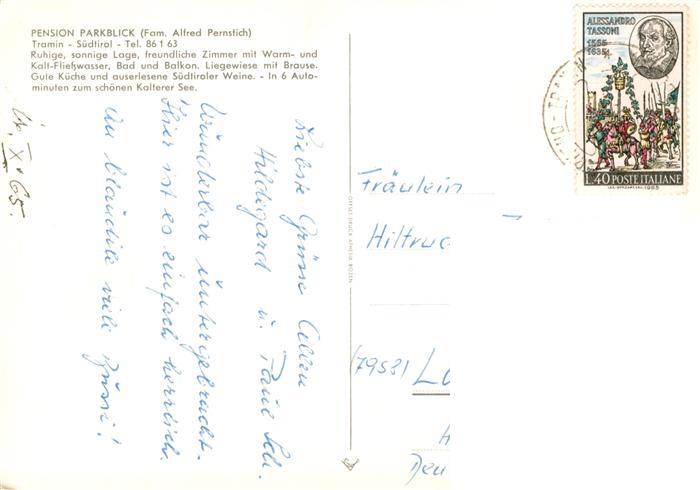 PENSION PARKBLICK (Fam. Alfred Pernstich)
Tramin - Südtirol - Tel. 86 1 63
Ruhige, sonnige Lage, freundliche Zimmer mit Warm- und
Kalt-Fließwasser, Bad und Balkon. Liegewiese mit Brause.
Gute Küche und auserlesene Südtiroler Weine. - In 6 Auto-
minuten zum schönen Kalterer See.
X. 65.
Liebste Grüsse Allen
Hildegard u. Paul Sch.
Wunderbar untergebracht.
Hier ist es einfach herrlich.
An Claudile viele Bussi!
OFFSET-DRUCK ATHESIA BOZEN
ALESSANDRO
TASSONI
1565
1635
L.40 POSTE ITALIANE
1965
Fräulein
Hiltru
(79531)